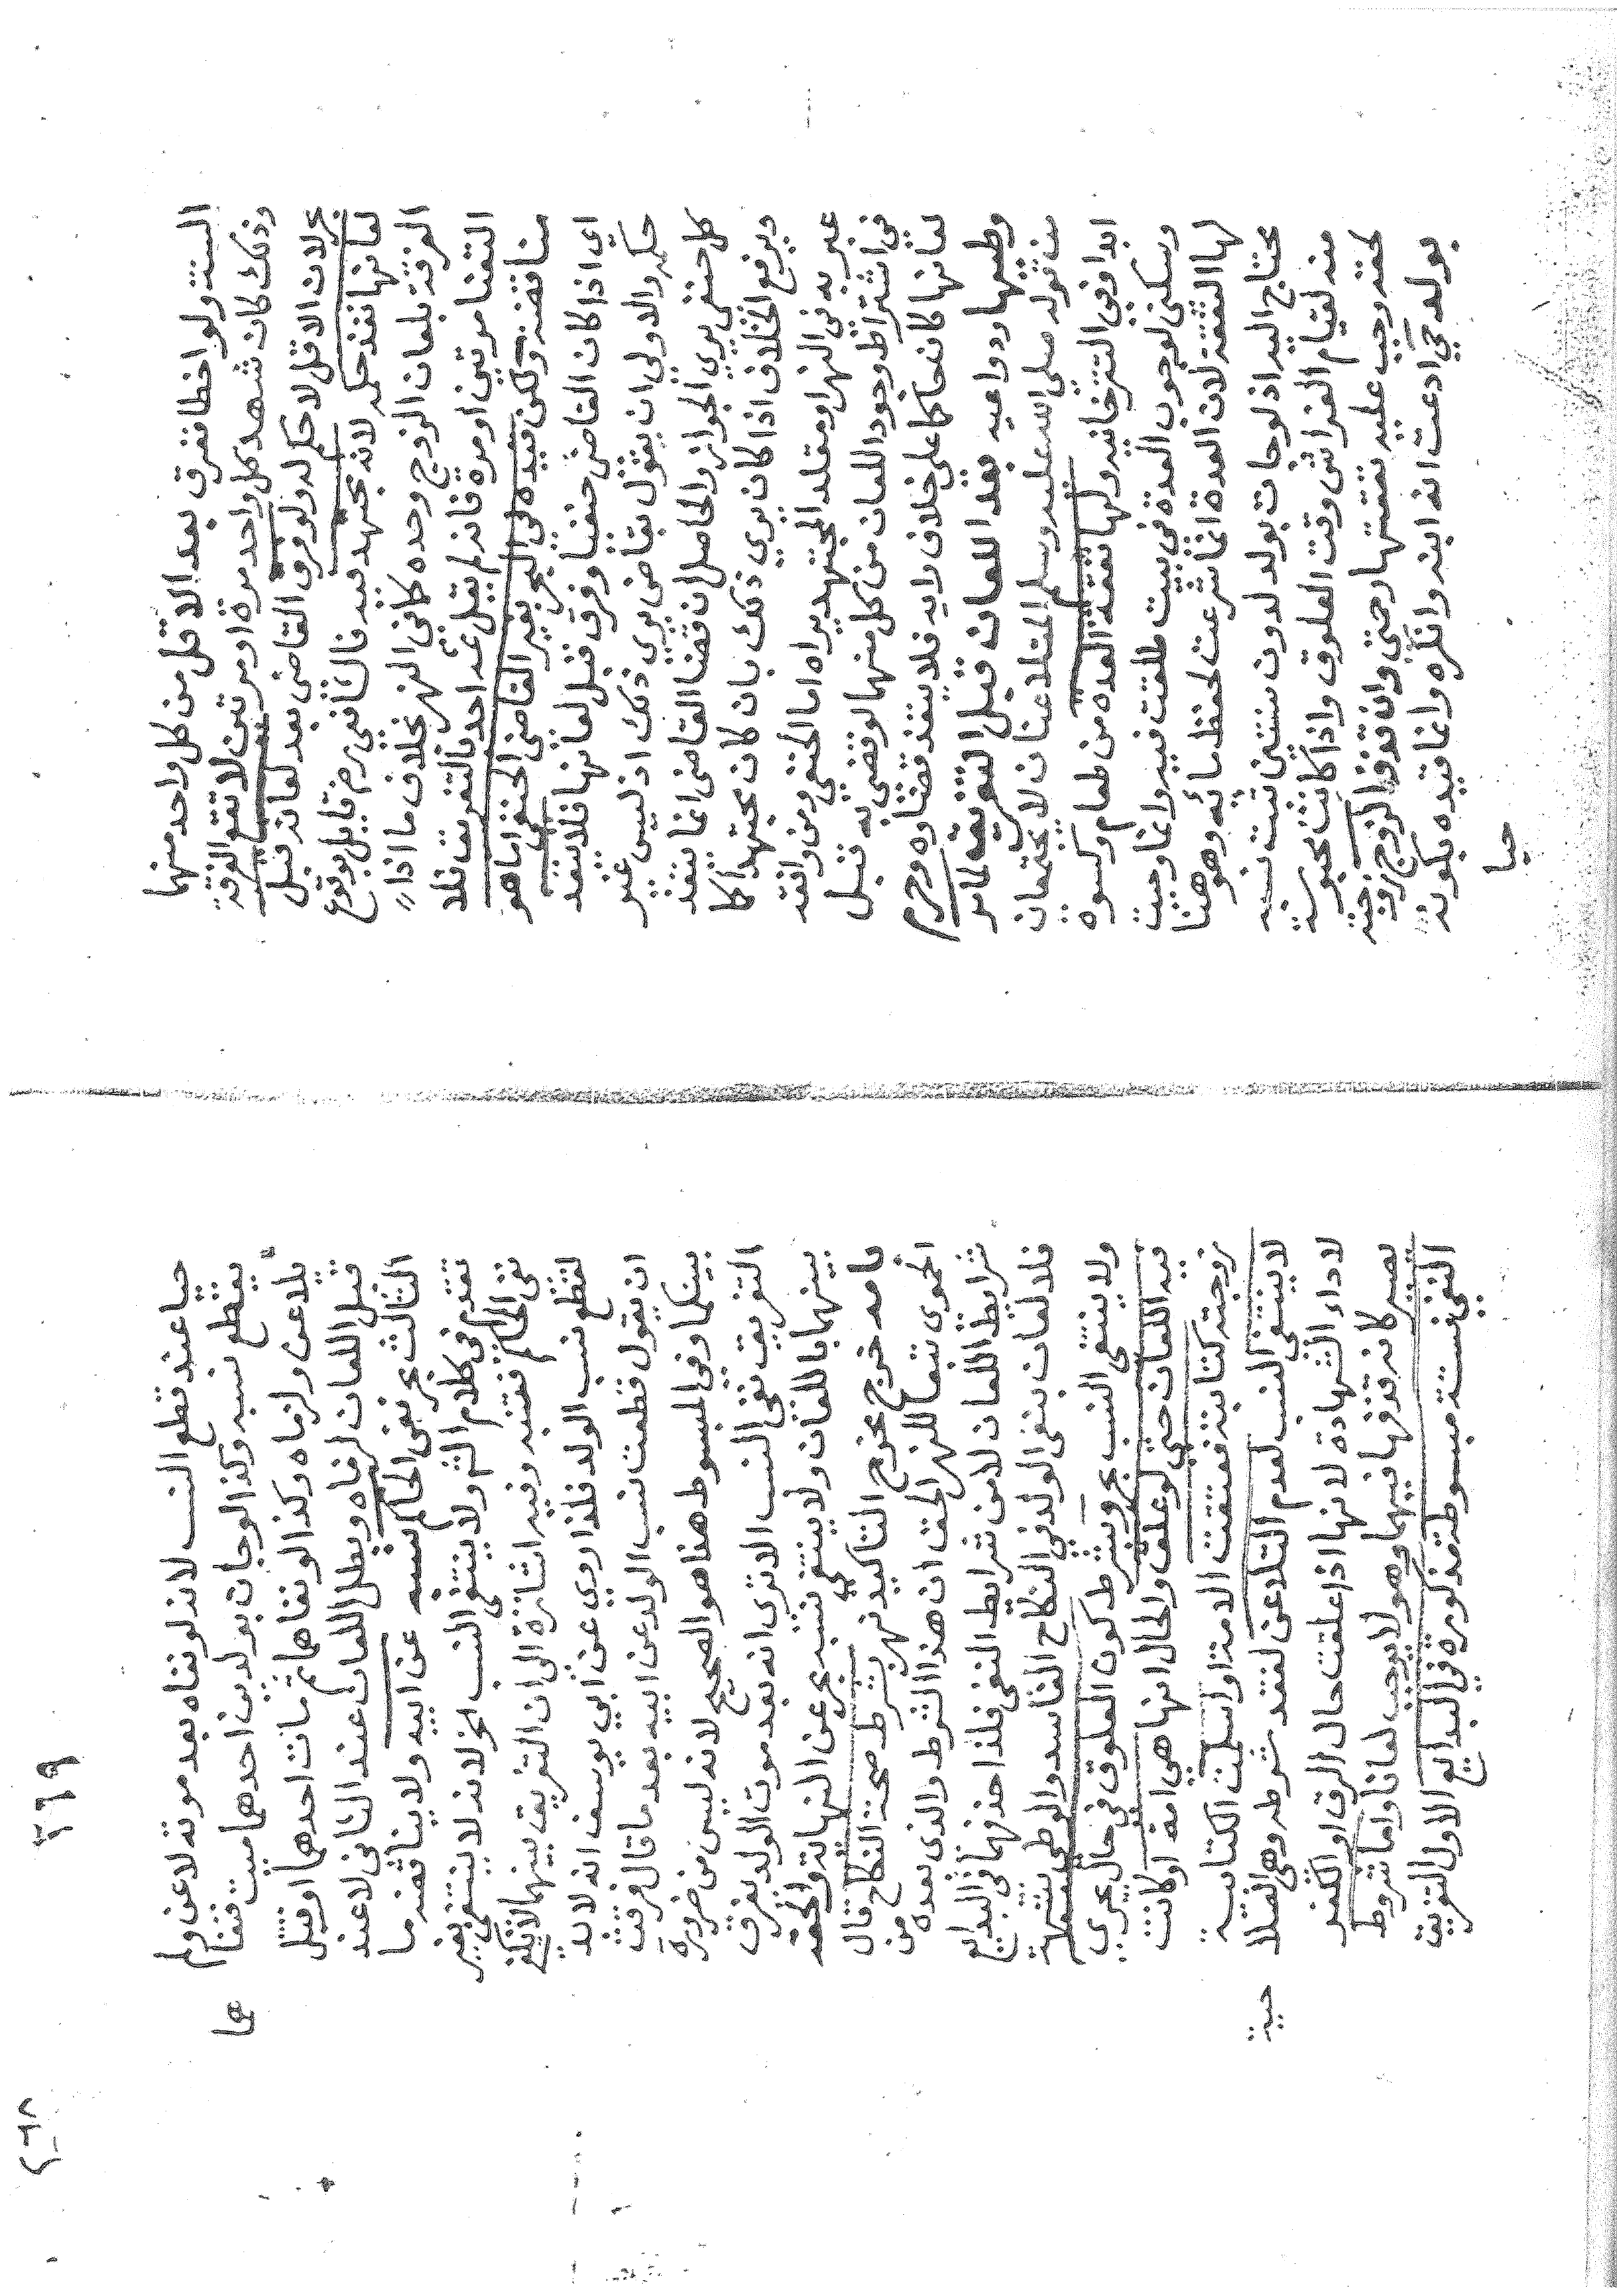 الستة ولو اخطا ففرق بعد الاقل من كل واحد منهما
وذلك كان شهد كل واحد مرة او مرتين لا تقع الفرقة
بحر لان الاقل لا حكم له ولو فرق القاضي بعد لعانه قبل
لعانها نفذ حكمه لانه مجتهد فيه فالشافعي رض قايل بوقوع
الفرقة بلعان الزوج وحده كافي النهر بخلاف ما اذا
التقنا مرتين او مرة فانه لم يقل احد بالتفريق فلا
مناقضة ولكن قيده في البحر بغير القاضي الحنفي اما هو
اي اذا كان القاضي حنفيا وفرق قبل لعانها فلا ينفذ
حكمه والاولى ان يقول بقاض يرى ذلك اذ ليس غير
كل حنفي يرى الجواز والحاصل ان قضا القاضي انما ينفذ
ويرفع الخلاف اذا كان يرى ذلك بان كان مجتهدا كما
عبر به في النهر او مقلد المجتهد يراه اما الحنفي ومن وافقه
في اشتراط وجود اللعان من كل منهما لو قضى به قبل
لعانها كان حاكما على خلاف رايه فلا ينفذ قضاوه وحرم
وطيها ودواعيه بعد اللعان قبل التفريق لمامر
من قوله صلى الله عليه وسلم المتلاعنان لا يجتمعان
ابدا وفي التترخانيه ولها نفقة العدة من طعام وكسوة
وسكنى لوجوب العدة في بيت طلقت فيه وانما وجبت
لها النفقة لان العدة انما شرعت لحفظ مائه وهو هنا
محتاج اليه اذ لو جات بولد لدون سنتين ثبت نسبه
منه لقيام الفراش وقت العلوق واذا كانت محبوسة
لحقه وجب عليه نفقتها رحمتي وان قذف الزوج زوجته
بولد حي ادعت انه ابنه وانكره وانما قيده بكونه
حيا
٢٦٩
حيا عند قطع النسب لانه لو نفاه بعد موته لاعن ولم
يقطع نسبه وكذا لو جات بولدين احدهما ميت فنفا
هما
يلاعن ولزماه وكذا لو نفاهما ثم مات احدهما او قتل
قبل اللعان لزماه وبطل اللعان عند الثاني لا عند
الثالث بحر نفى الحاكم نسبه عن ابيه ولا يناقضه ما
تقدم في كلام الشر ولا ينتفي النسب الخ لانه لا ينتفي بغير
نفي الحاكم فتنبه وفيه اشارة الى ان التفريق بينهما لا يكفي
لقطع نسب الولد فلذا روي عن ابي يوسف انه لا بد
ان يقول قطعت نسب الولد عن ابيه بعد ما قال فرقت
بينكما وفي المبسوط هذا هو الصحيح لانه ليس من ضرورة
التفريق نفي النسب الا ترى انه بعد موت الولد يفرق
بينهما باللعان ولا ينتفي نسبه بحر عن النهاية والحقه
بامه خرج مخرج التاكيد نهر بشرط صحة النكاح قال
الحموي تبعا للنهر الحق ان هذا الشرط والذي بعده من
شرايط اللعان لا من شرايط النفي فلذا حذفهما في البدايع
فلا لعان بنفي الولد في النكاح الفاسد والوطي بشبهة
ولا ينتفي النسب بحر ويشترط كون العلوق في حال يجري
فيه اللعان حتى لو علقت والحال انها هي امة او كانت
زوجته كتابية فعتقت الامة او اسلمت الكتابية
لا ينتفي النسب لعدم التلاعن لفقد شرطه وهي الصلا
حية
لاداء الشهادة لانها اذ علقت حال الرق او الكفر
يصير كانه قذفها فيهما وهو لا يوجب لعانا واما شروط
النفي فستة مبسوطة مذكورة في البدايع الاول التفريق
٢٦٨